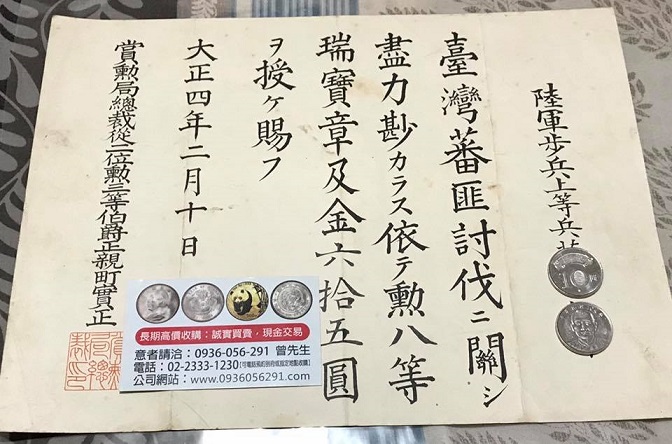 陸軍歩兵上等兵
臺灣蕃匪討伐ニ關シ
盡力尠カラス依テ勲八等
瑞寶章及金六拾五圓
ヲ授ケ賜フ
大正四年二月十日
賞勲局總裁從二位勲三等伯爵正親町實正
長期高價收購：誠實買賣，現金交易
意者請洽：0936-056-291 曾先生
電話：02-2333-1230
公司網站：www.0936056291.com
10